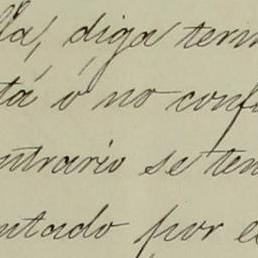 lla, diga term
tá ó no conf
ntrario se ten
ntado por e